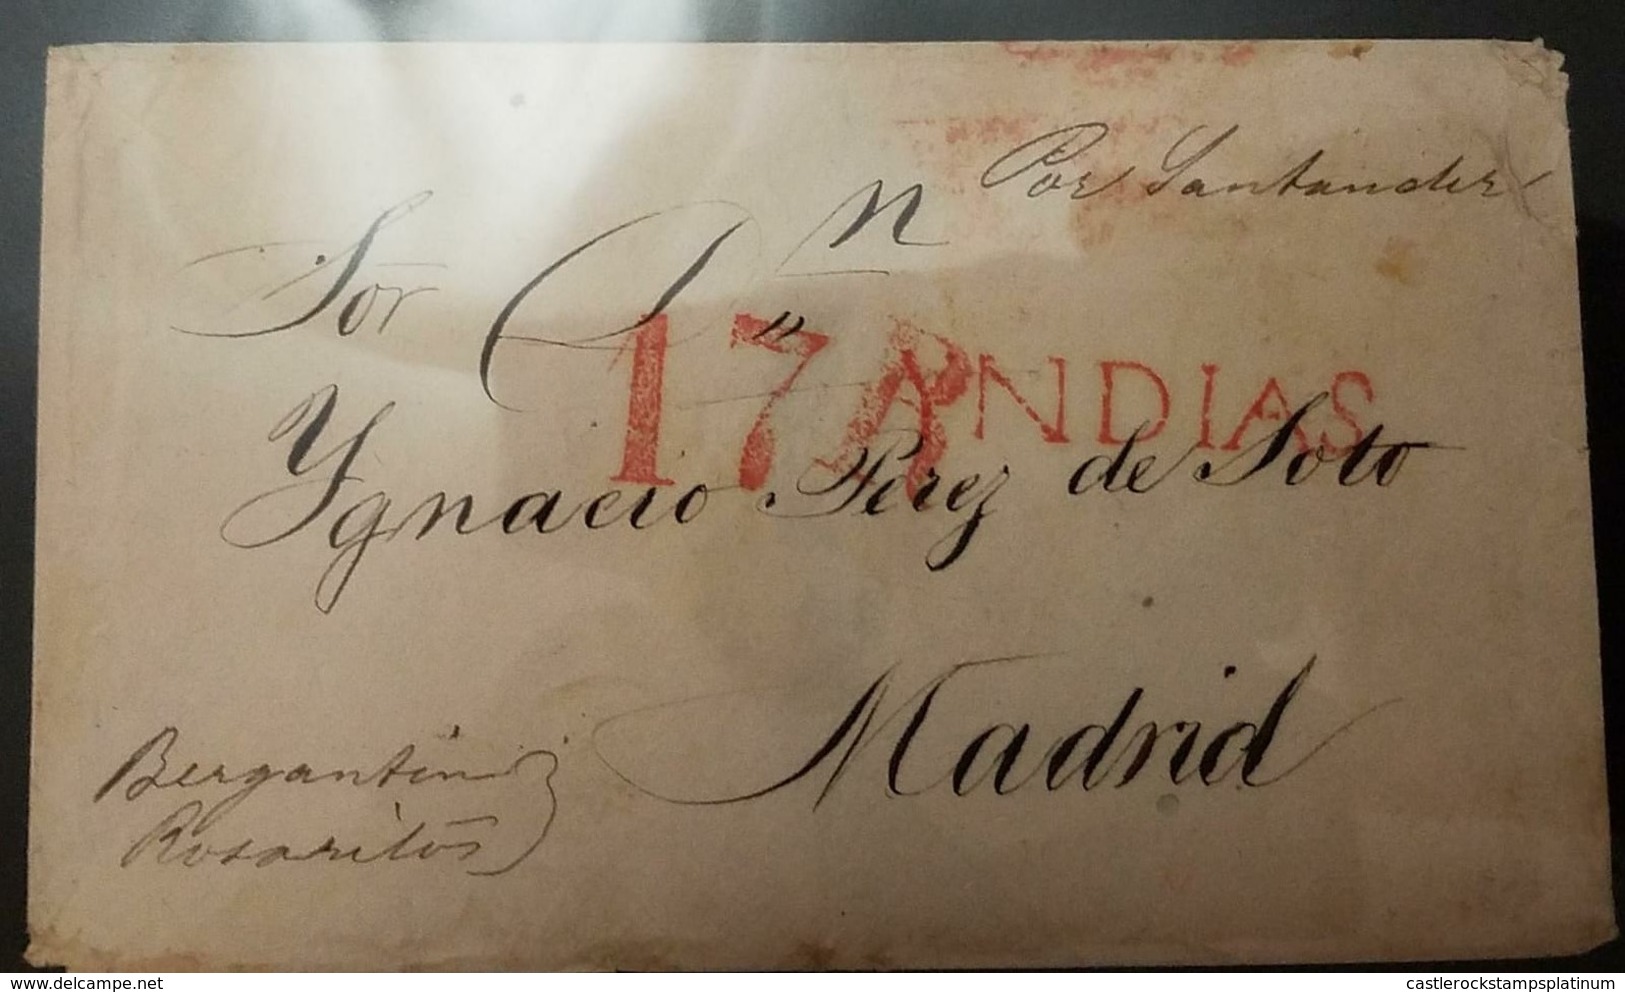 Por Santander
Sor Dn
17 R YNDIAS
Ygnacio Perez de Soto
Madrid
Bergantin
Rosarito
delcampe.net
castlerockstampsplatinum